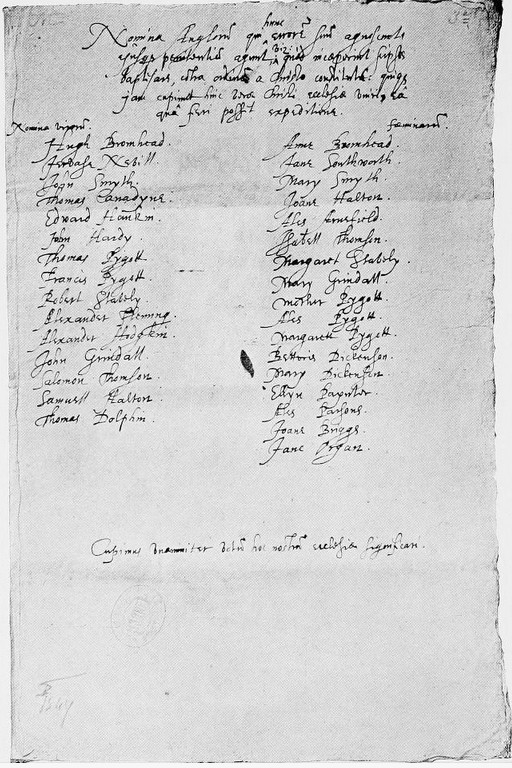 hunc
Nomina Anglorū qui errorē suū agnoscūt
ejusqs penitentiā agunt viz: quod inceperint seipsos
baptisare, cōtra ordinē a Christo constitutū: quiqs
jam cupiunt hinc verae Christi ecclesiae uniri, eā
quâ fieri possit expeditione.
Nomina virorū.
Hugh Bromhead.
Jervase Nevill.
John Smyth.
Thomas Canadyne.
Edward Hankin.
John Hardy.
Thomas Pygott.
Francis Pygett.
Robert Stavely.
Alexander Fleming.
Alexander Hodgkin.
John Grindall.
Salomon Thomson.
Samuell Halton.
Thomas Dolphin.
faeminarū.
Anne Bromhead.
Jane Southworth.
Mary Smyth.
Joane Halton.
Ales Arnefield.
Isabell Thomson.
Margaret Stavely.
Mary Grindall.
Mother Pygott.
Ales Pygott.
Margarett Pygett.
Betteris Dickenson.
Mary Dickenson.
Ellyn Paynter.
Ales Parsons.
Joane Briggs.
Jane Organ.
Cupimus unanimiter votū hoc nostrū ecclesiae significari.